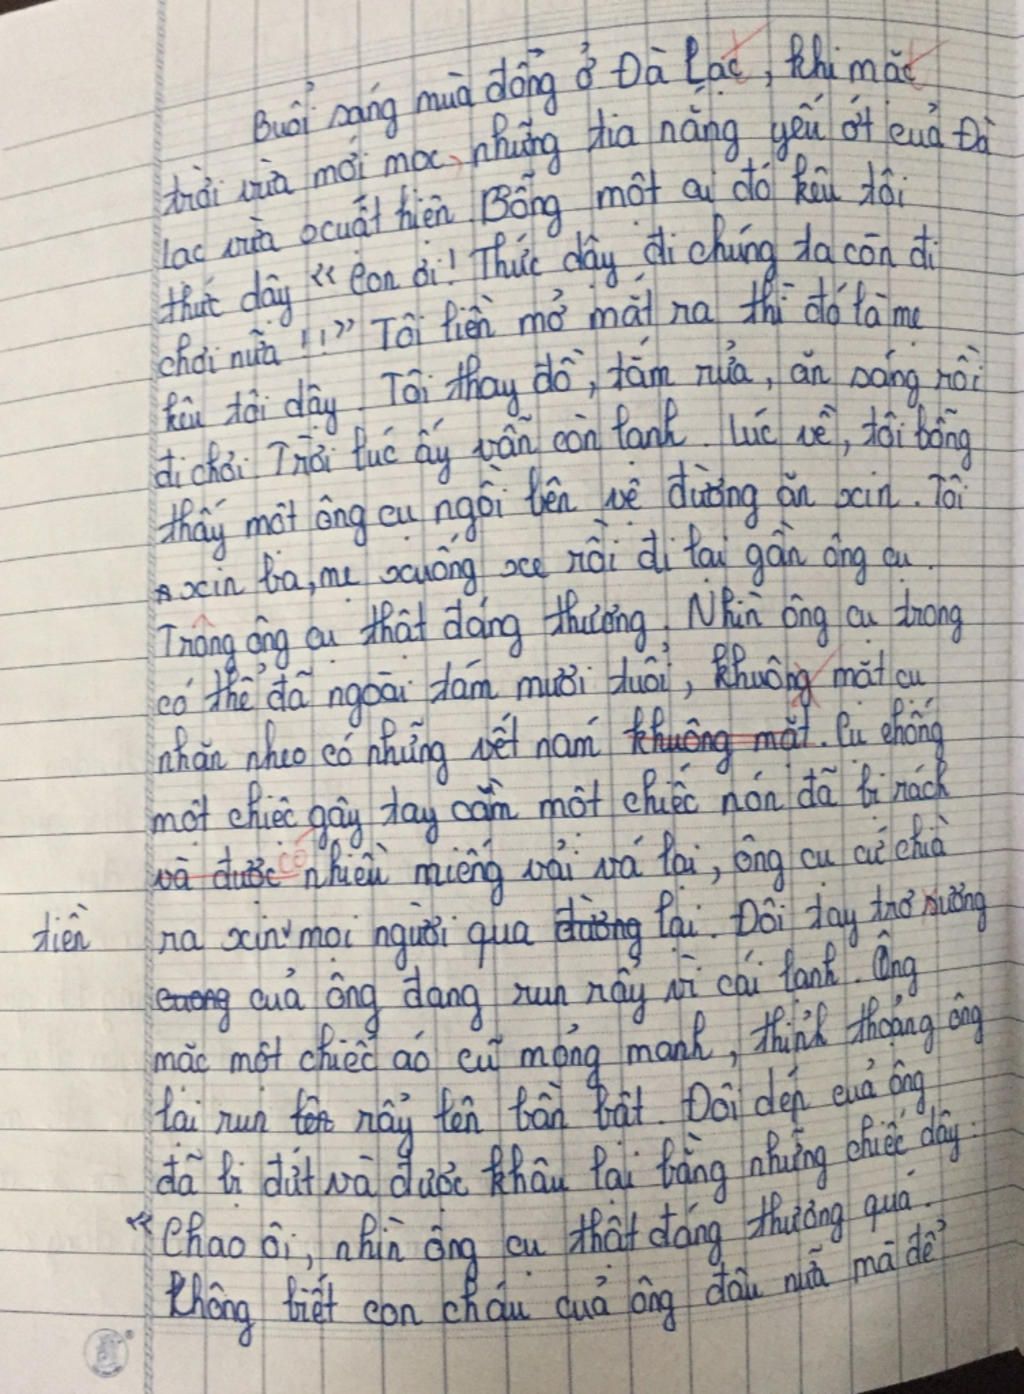 Buổi sáng mùa đông ở Đà Lạc, khi mặc
trời vừa mới mọc, những tia nắng yếu ớt của Đà
Lạc vừa xuất hiện. Bỗng một ai đó kêu tôi
thức dậy “Con ơi! Thức dậy đi chúng ta còn đi
chơi nữa !!” Tôi liền mở mắt ra thì đó là mẹ
kêu tôi dậy. Tôi thay đồ, tắm rửa, ăn sáng rồi
đi chơi. Trời lúc ấy vẫn còn lạnh. Lúc về, tôi bỗng
thấy một ông cụ ngồi bên vệ đường ăn xin. Tôi
xin ba, mẹ xuống xe rồi đi lại gần ông cụ.
Trông ông cụ thật đáng thương. Nhìn ông cụ trong
có thể đã ngoài tám mươi tuổi, khuông mặt cụ
nhăn nheo có những vết nám khuông mặt. Cụ chống
một chiếc gậy tay cầm một chiếc nón đã bị rách
và được có nhiều miếng vải vá lại, ông cụ cứ chìa
tiền ra xin mọi người qua đường lại. Đôi tay trơ xương
cuong của ông đang run rẩy vì cái lạnh. Ông
mặc một chiếc áo cũ mỏng manh, thỉnh thoảng ông
lại run lên rẩy lên bần bật. Đôi dép của ông
đã bị đứt và được khâu lại bằng những chiếc dây.
“Chao ôi, nhìn ông cụ thật đáng thương quá.
Không biết con cháu của ông đâu nữa mà để